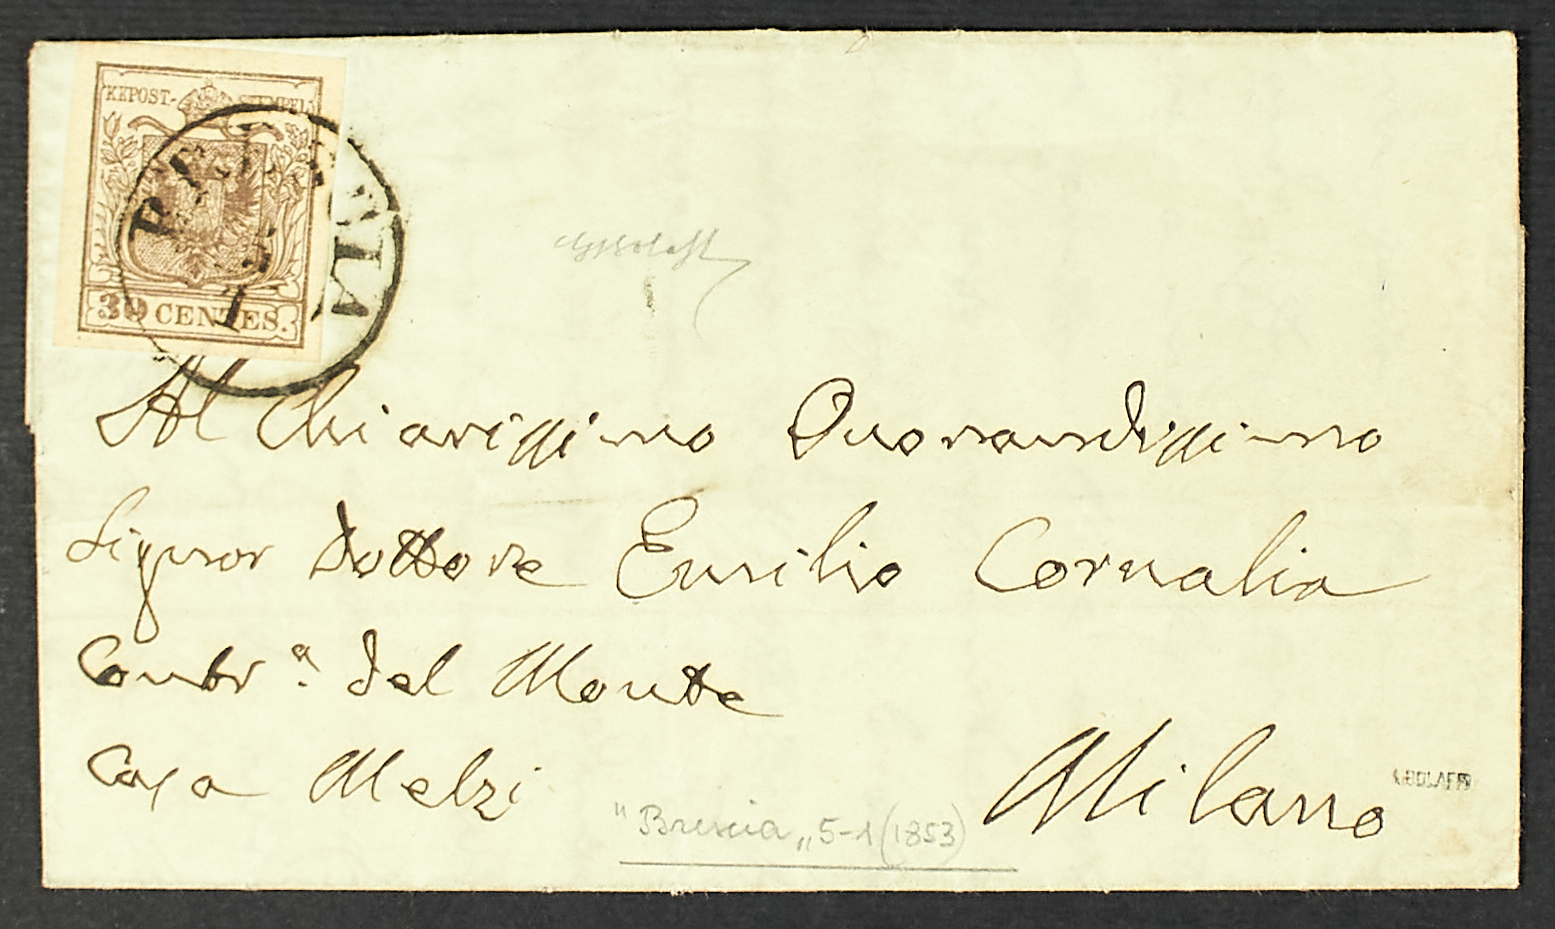 KKPOST-STEMPEL
30 CENTES.
BRESCIA
Al Chiarissimo Onorandissimo
Signor Dottore Emilio Cornalia
Contr.ª del Monte
Casa Melzi
Milano
"Brescia„ 5-1 (1853)
A.BOLAFFI